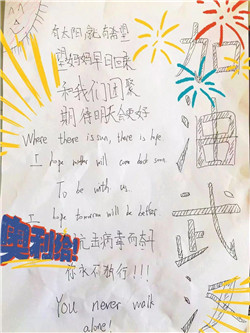 有太阳就有希望
望妈妈早日回来
和我们团聚
期待明天会更好
Where there is sun, there is hope.
I hope mother will come back soon.
To be with us.
I hope tomorrow will be better
击病毒而奋斗
你永不独行!!!
You never walk
alone!
奥利给!
加油武汉